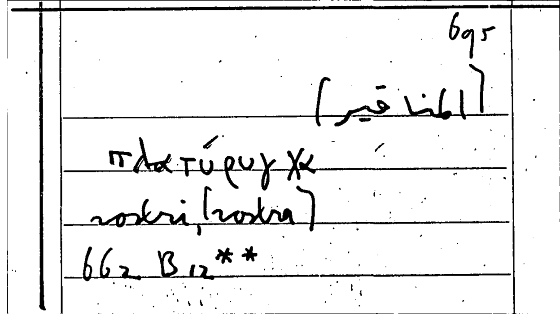 695
[المناقير]
πλατύρυγχα
rostri, [rostra]
662 B 12**